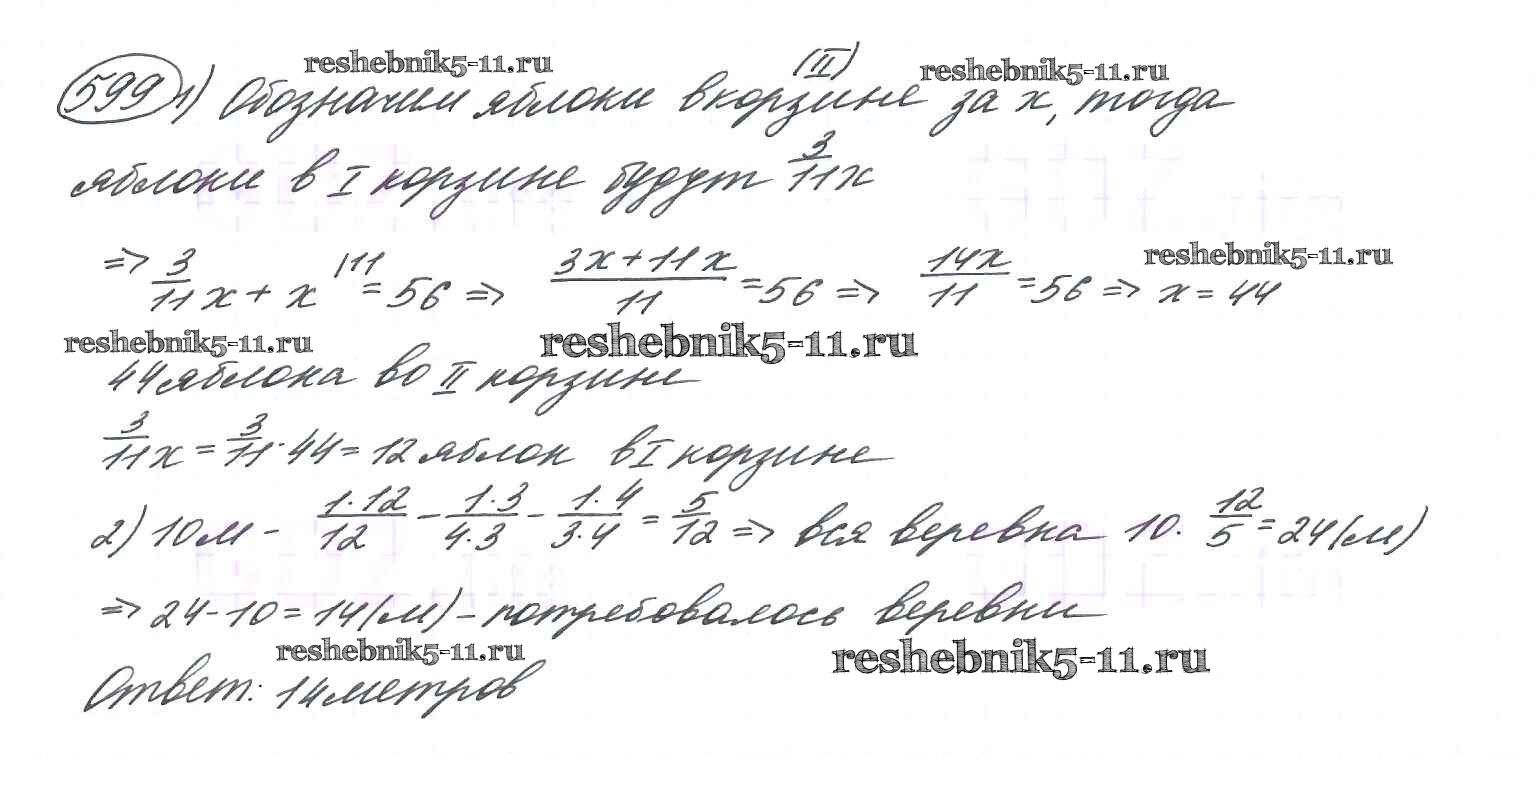 reshebnik5-11.ru (II) reshebnik5-11.ru
599 1) Обозначим яблоки в корзине за x, тогда
яблоки в I корзине будут 3/11 x
=> 3/11 x + x |11 = 56 => (3x+11x)/11 = 56 => 14x/11 = 56 => x = 44 reshebnik5-11.ru
reshebnik5-11.ru reshebnik5-11.ru
44 яблока во II корзине
3/11 x = 3/11 · 44 = 12 яблок в I корзине
2) 10 м - (1·12)/12 - (1·3)/(4·3) - (1·4)/(3·4) = 5/12 => вся веревка 10 · 12/5 = 24 (м)
=> 24-10 = 14 (м) - потребовалось веревки
reshebnik5-11.ru reshebnik5-11.ru
Ответ: 14 метров